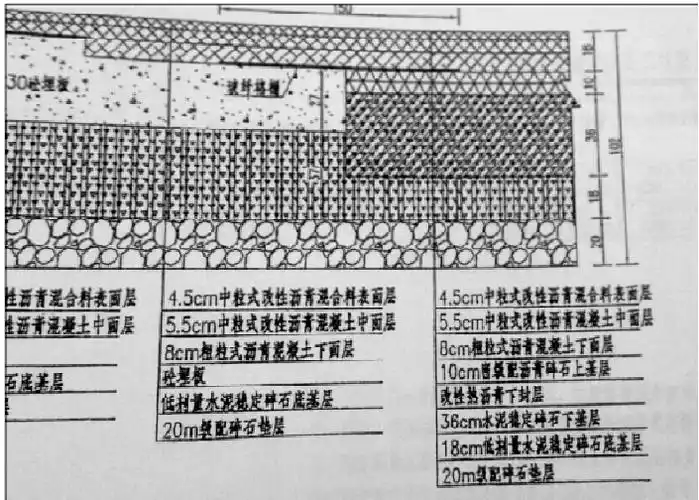 150
18
30砼埋板
玻纤格栅
10
27
36
102
57
18
20
性沥青混合料表面层
性沥青混凝土中面层
石底基层
层
4.5cm中粒式改性沥青混合料表面层
5.5cm中粒式改性沥青混凝土中面层
8cm粗粒式沥青混凝土下面层
砼埋板
低剂量水泥稳定碎石底基层
20m级配碎石垫层
4.5cm中粒式改性沥青混合料表面层
5.5cm中粒式改性沥青混凝土中面层
8cm粗粒式沥青混凝土下面层
10cm密级配沥青碎石上基层
改性热沥青下封层
36cm水泥稳定碎石下基层
18cm低剂量水泥稳定碎石底基层
20m级配碎石垫层